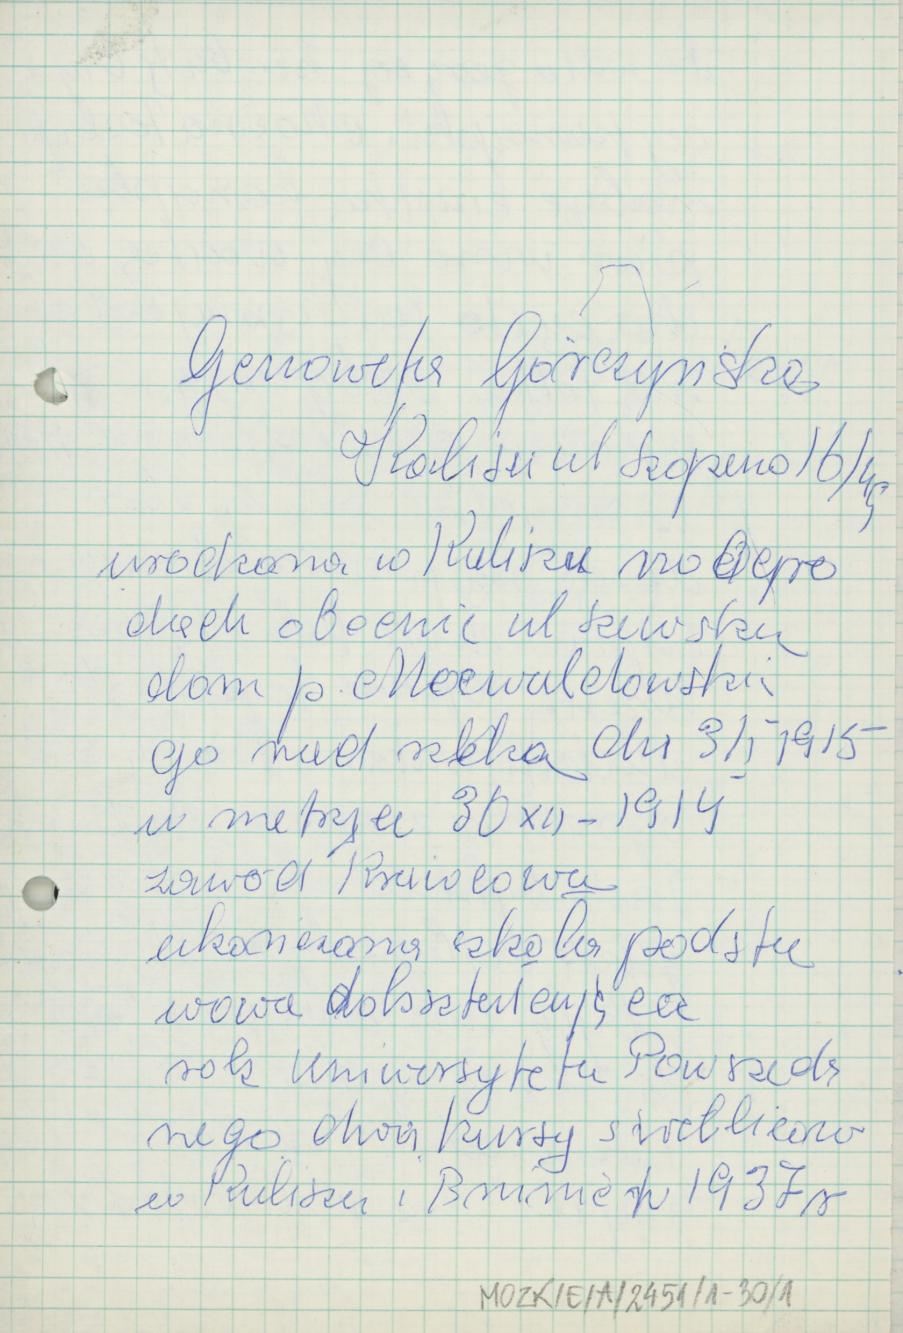 Genowefa Górczyńska
Kalisz ul Szopena 16/45
urodzona w Kaliszu na Ogro
dach obecnie ul szewska
dom p.
go nad rzeką dn 3/I 1915
w metryce 30 XII - 1914
zawód Krawcowa
ukończona szkoła podsta
wowa dokształcająca
rok Uniwersytetu Powszech
nego dwa kursy świetlicowe
w Kaliszu i 1937 r
MOZK/E/A/2451/1-30/1